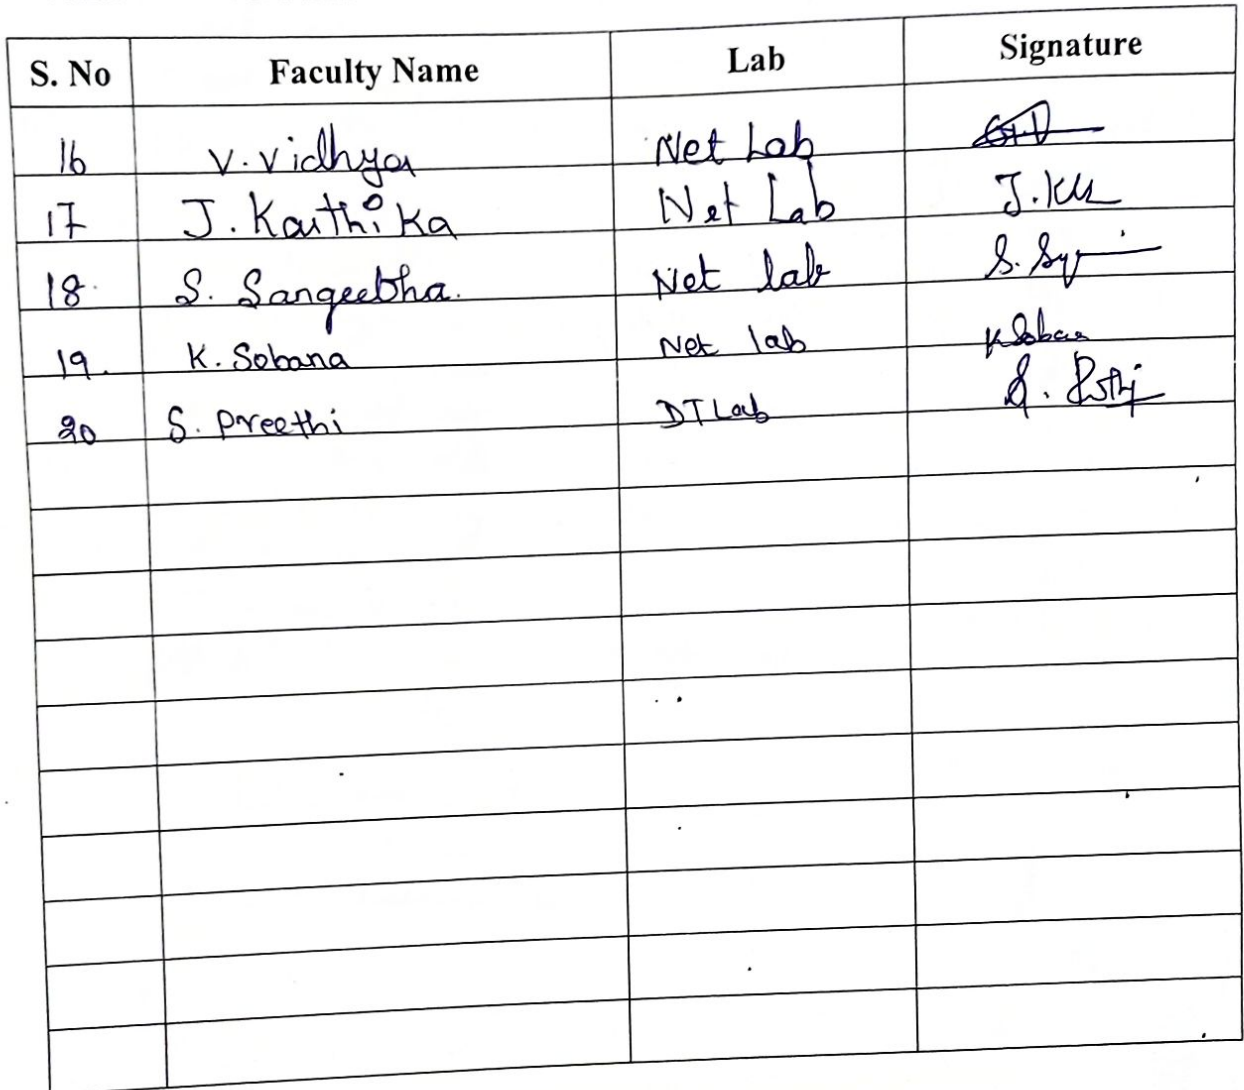 S. No Faculty Name Lab Signature
16 V. Vidhya Net Lab
17 J. Karthika Net Lab J.
18. S. Sangeetha. Net lab S.
19. K. Sobana Net lab K Sobana
20 S. Preethi DT Lab S.